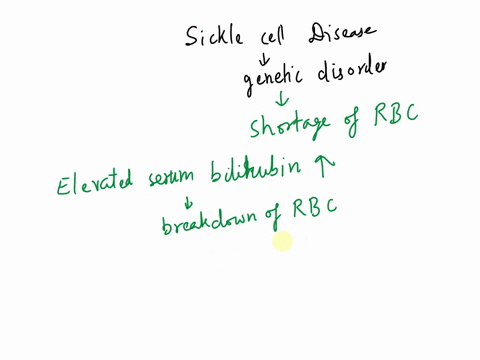 Sickle cell Disease
↓
genetic disorder
↓
Shortage of RBC
Elevated serum bilirubin ↑
↓
breakdown of RBC